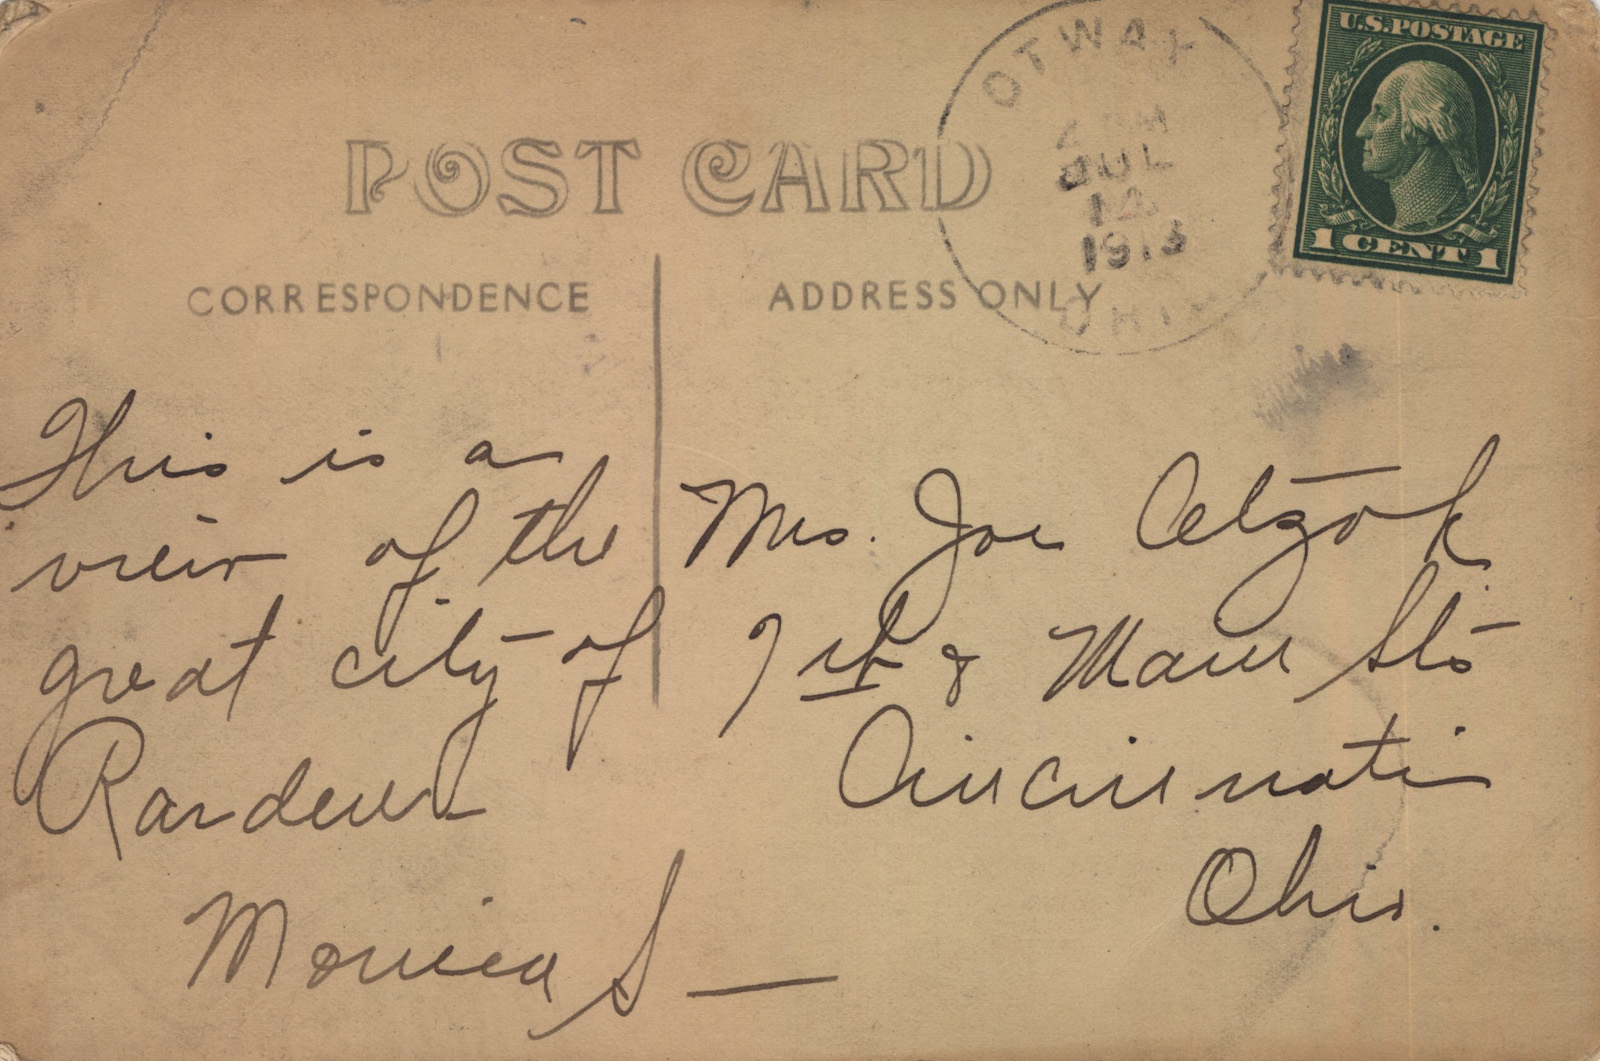 U.S.POSTAGE
1 CENT 1
OTWAY
JUL
12
1913
OHIO
POST CARD
CORRESPONDENCE
ADDRESS ONLY
This is a
view of the
great city of
Rarden
Monica S—
Mrs. Joe
& Main Sts
Cincinnati
Ohio.